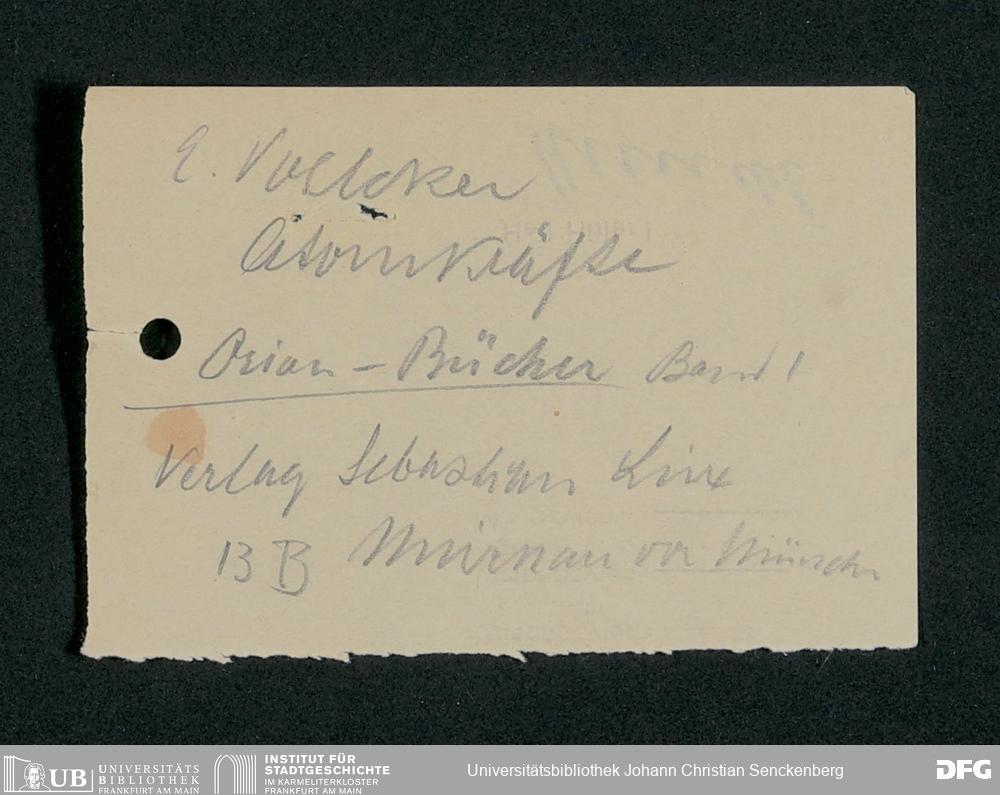 E. Voelcker
Atomkräfte
Orion-Bücher Band 1
Verlag Sebastian Lux
13 B Murnau vor München
UB UNIVERSITÄTS
BIBLIOTHEK
FRANKFURT AM MAIN
INSTITUT FÜR
STADTGESCHICHTE
IM KARMELITERKLOSTER
FRANKFURT AM MAIN
Universitätsbibliothek Johann Christian Senckenberg
DFG